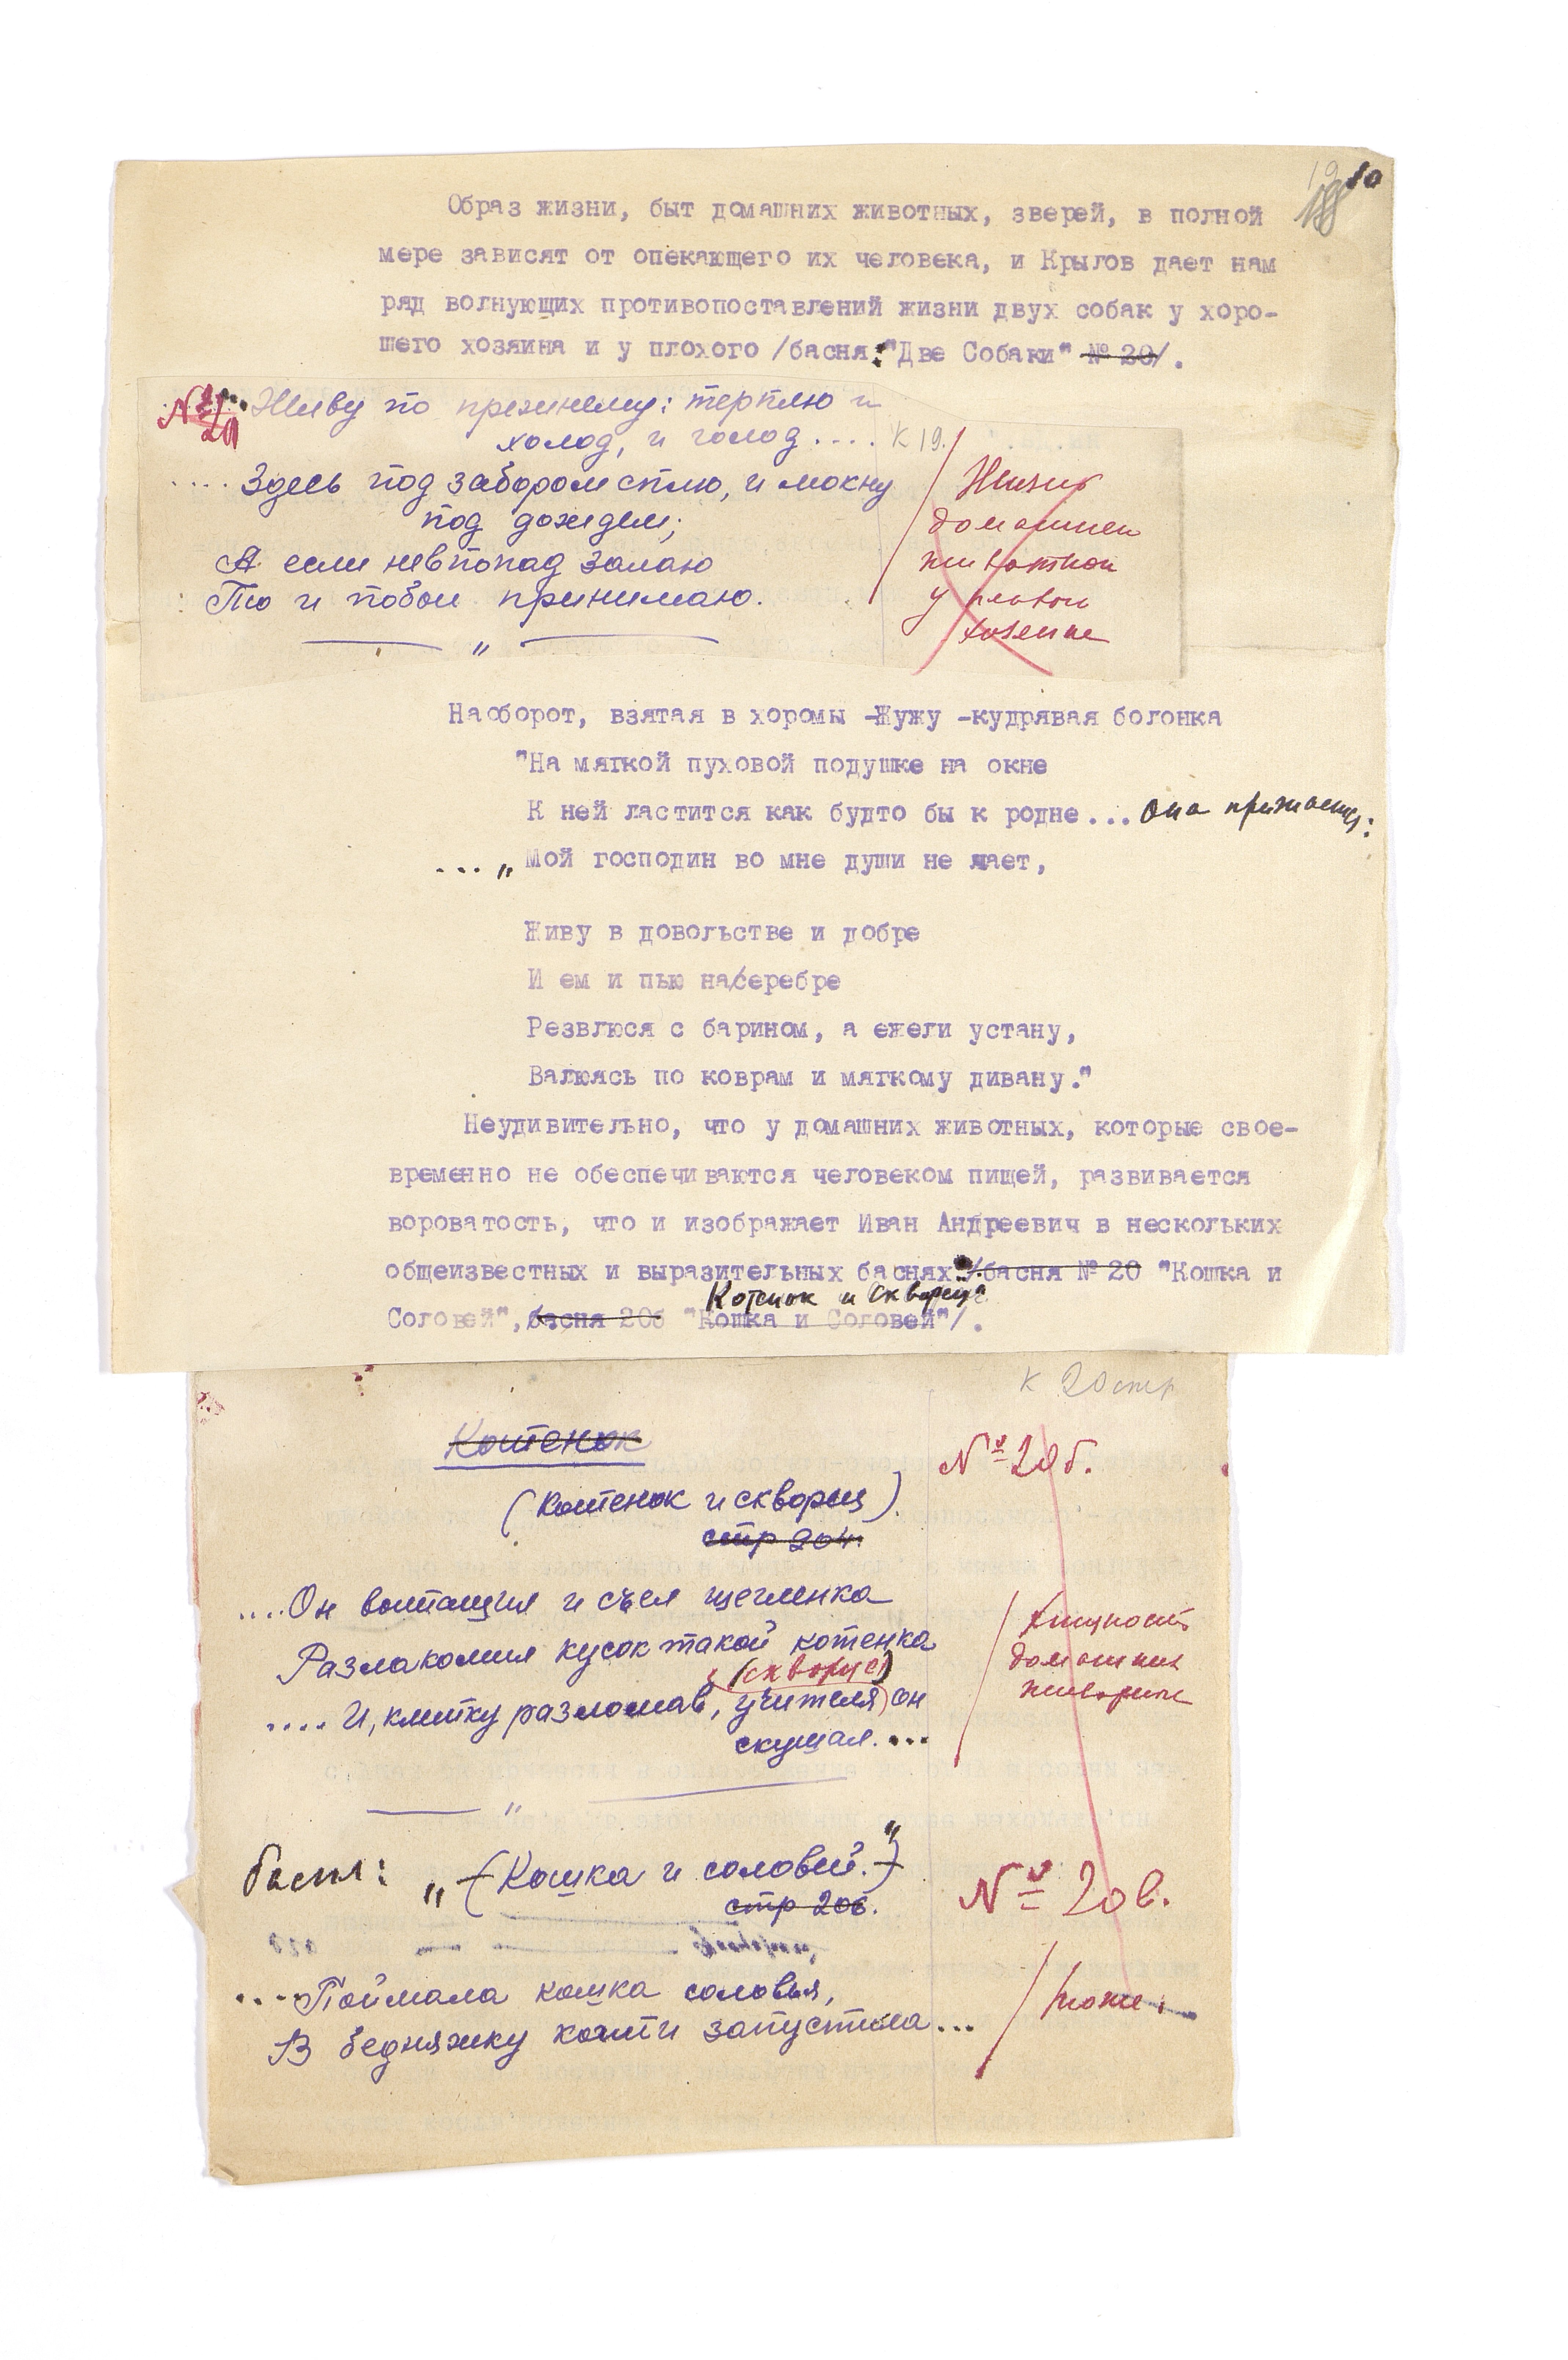 19 80
188
Образ жизни, быт домашних животных, зверей, в полной
мере зависят от опекающего их человека, и Крылов дает нам
ряд волнующих противопоставлений жизни двух собак у хоро-
шего хозяина и у плохого /басня: "Две Собаки" № 20/.
№ 20 ... Живу по прежнему: терплю и
холод, и голод.... К 19.
.... Здесь под забором сплю, и мокну
под дождем;
А если невпопад залаю
То и побои принимаю.
"
Жизнь
домашнего
животного
у плохого
хозяина
Наоборот, взятая в хоромы -Жужу -кудрявая болонка
"На мягкой пуховой подушке на окне
К ней ластится как будто бы к родне... Она
... „Мой господин во мне души не чает,
Живу в довольстве и добре
И ем и пью на/серебре
Резвлюся с барином, а ежели устану,
Валяюсь по коврам и мягкому дивану."
Неудивительно, что у домашних животных, которые свое-
временно не обеспечиваются человеком пищей, развивается
вороватость, что и изображает Иван Андреевич в нескольких
общеизвестных и выразительных баснях: /басня № 20 "Кошка и
Котенок и Скворец
Соловей", басня 20б "Кошка и Соловей"/.
К 20 стр
Котенок
№ 20б.
(Котенок и скворец).
стр 204.
.... Он вытащил и съел щегленка
Разлакомил кусок такой котенка
(скворца)
.... И, клетку разломав, учителя он
скушал....
"
Хищность
домашних
животных
басня: „(Кошка и соловей.)"
стр 206.
№ 20в.
.... Поймала кошка соловья,
В бедняжку когти запустила...
тоже.